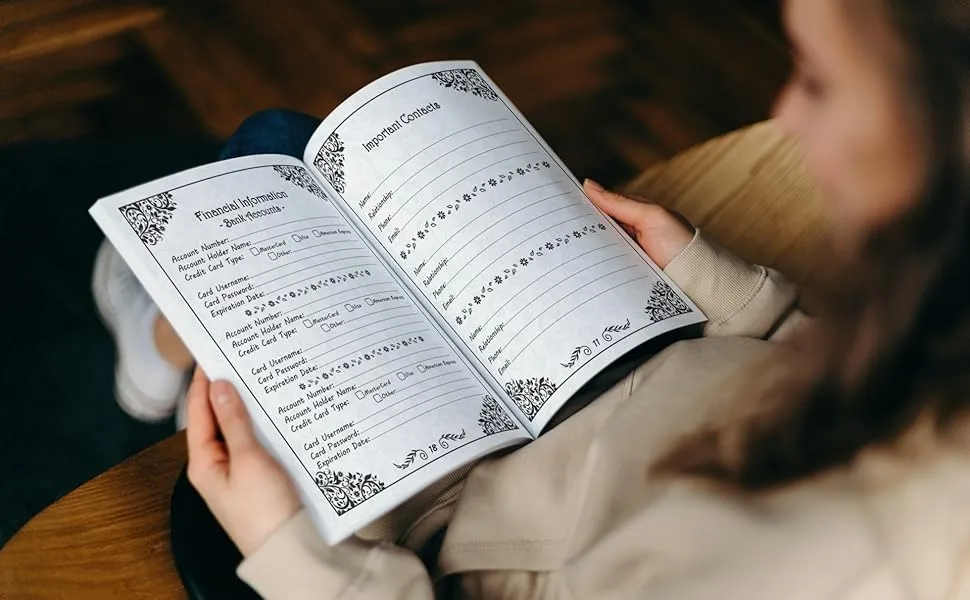 Financial Information
-Bank Accounts-
Account Number:
Account Holder Name:
Credit Card Type: MasterCard Visa American Express
Other:
Card Username:
Card Password:
Expiration Date:
Account Number:
Account Holder Name:
Credit Card Type: MasterCard Visa American Express
Other:
Card Username:
Card Password:
Expiration Date:
Account Number:
Account Holder Name:
Credit Card Type: MasterCard Visa American Express
Other:
Card Username:
Card Password:
Expiration Date:
18
Important Contacts
Name:
Relationship:
Phone:
Email:
Name:
Relationship:
Phone:
Email:
Name:
Relationship:
Phone:
Email:
11